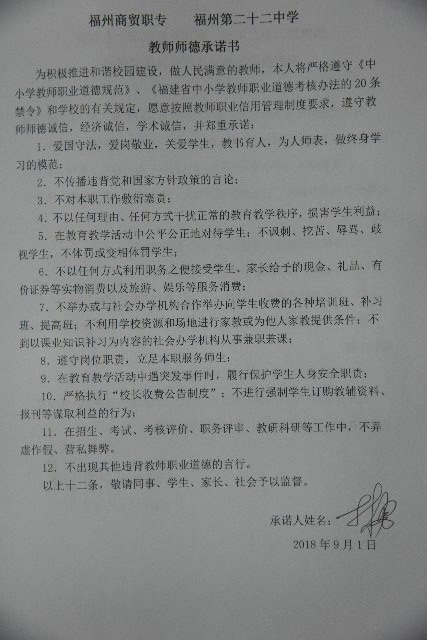 福州商贸职专 福州第二十二中学
教师师德承诺书
为积极推进和谐校园建设，做人民满意的教师，本人将严格遵守《中
小学教师职业道德规范》、《福建省中小学教师职业道德考核办法的20条
禁令》和学校的有关规定，愿意按照教师职业信用管理制度要求，遵守教
师师德诚信，经济诚信，学术诚信，并郑重承诺：
1．爱国守法，爱岗敬业，关爱学生，教书育人，为人师表，做终身学
习的模范；
2．不传播违背党和国家方针政策的言论；
3．不对本职工作敷衍塞责；
4．不以任何理由、任何方式干扰正常的教育教学秩序，损害学生利益；
5．在教育教学活动中公平公正地对待学生；不讽刺、挖苦、辱骂、歧
视学生，不体罚或变相体罚学生；
6．不以任何方式利用职务之便接受学生、家长给予的现金、礼品、有
价证券等实物消费以及旅游、娱乐等服务消费；
7．不举办或与社会办学机构合作举办向学生收费的各种培训班、补习
班、提高班；不利用学校资源和场地进行家教或为他人家教提供条件；不
到以课业知识补习为内容的社会办学机构从事兼职兼课；
8．遵守岗位职责，立足本职服务师生；
9．在教育教学活动中遇突发事件时，履行保护学生人身安全职责；
10．严格执行“校长收费公告制度”；不进行强制学生订购教辅资料、
报刊等谋取利益的行为；
11．在招生、考试、考核评价、职务评审、教研科研等工作中，不弄
虚作假、营私舞弊。
12．不出现其他违背教师职业道德的言行。
以上十二条，敬请同事、学生、家长、社会予以监督。
承诺人姓名：
2018年9月1日